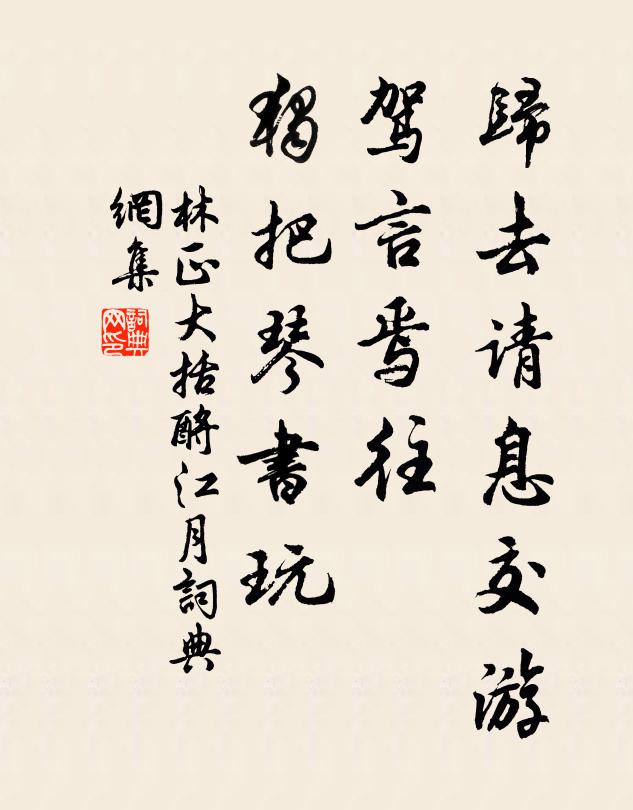 歸去请息交游
驾言焉往
独把琴書玩
林正大括酹江月詞典
網集
詞典
网印